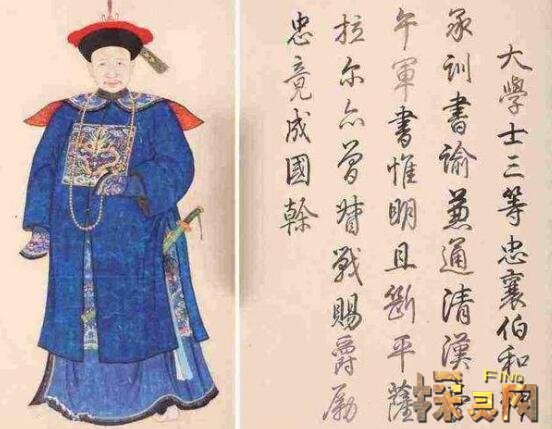 大學士三等忠襄伯和
承訓書諭兼通清漢
午軍書惟明且斷平薩
拉尔亦曾督戰賜爵勵
忠竟成國幹
FIND
探灵网